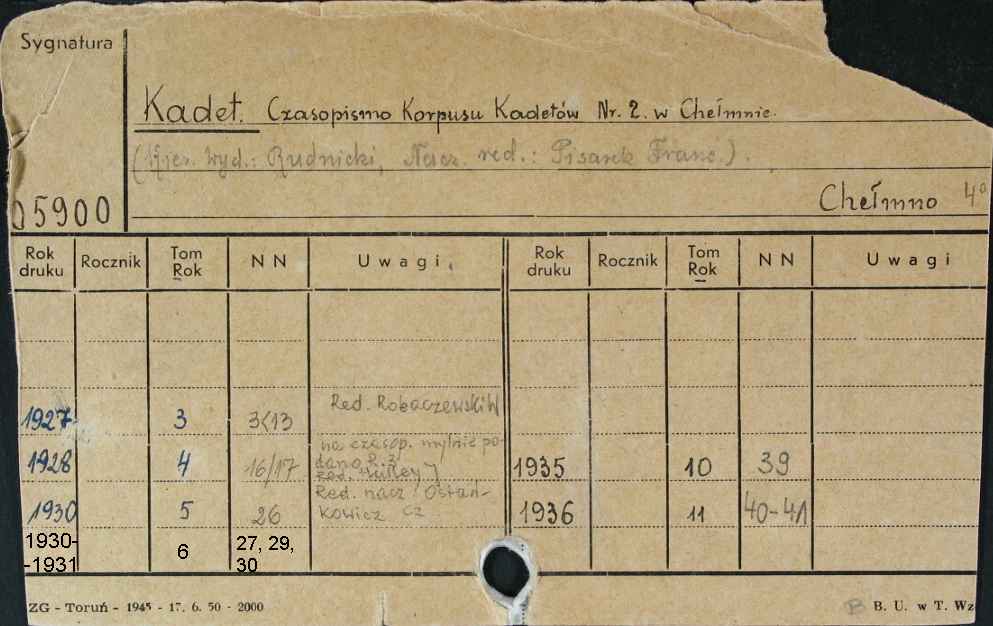 Sygnatura
Kadet. Czasopismo Korpusu Kadetów Nr. 2. w Chełmnie.
wyd.: Rudnicki, Nacz. red.: Pisarek Franc.).
05900
Chełmno 4°
Rok druku Rocznik Tom Rok NN Uwagi Rok druku Rocznik Tom Rok NN Uwagi
1927 3 3<13 Red. Robaczewski W
1928 4 16/17 na czasop. mylnie podano R. 3 Red. 1935 10 39
1930 5 26 Red. nacz. Ostańkowicz Cz 1936 11 40-41
1930-
-1931 6 27, 29, 30
ZG - Toruń - 1945 - 17. 6. 50 - 2000
B. U. w T. Wz